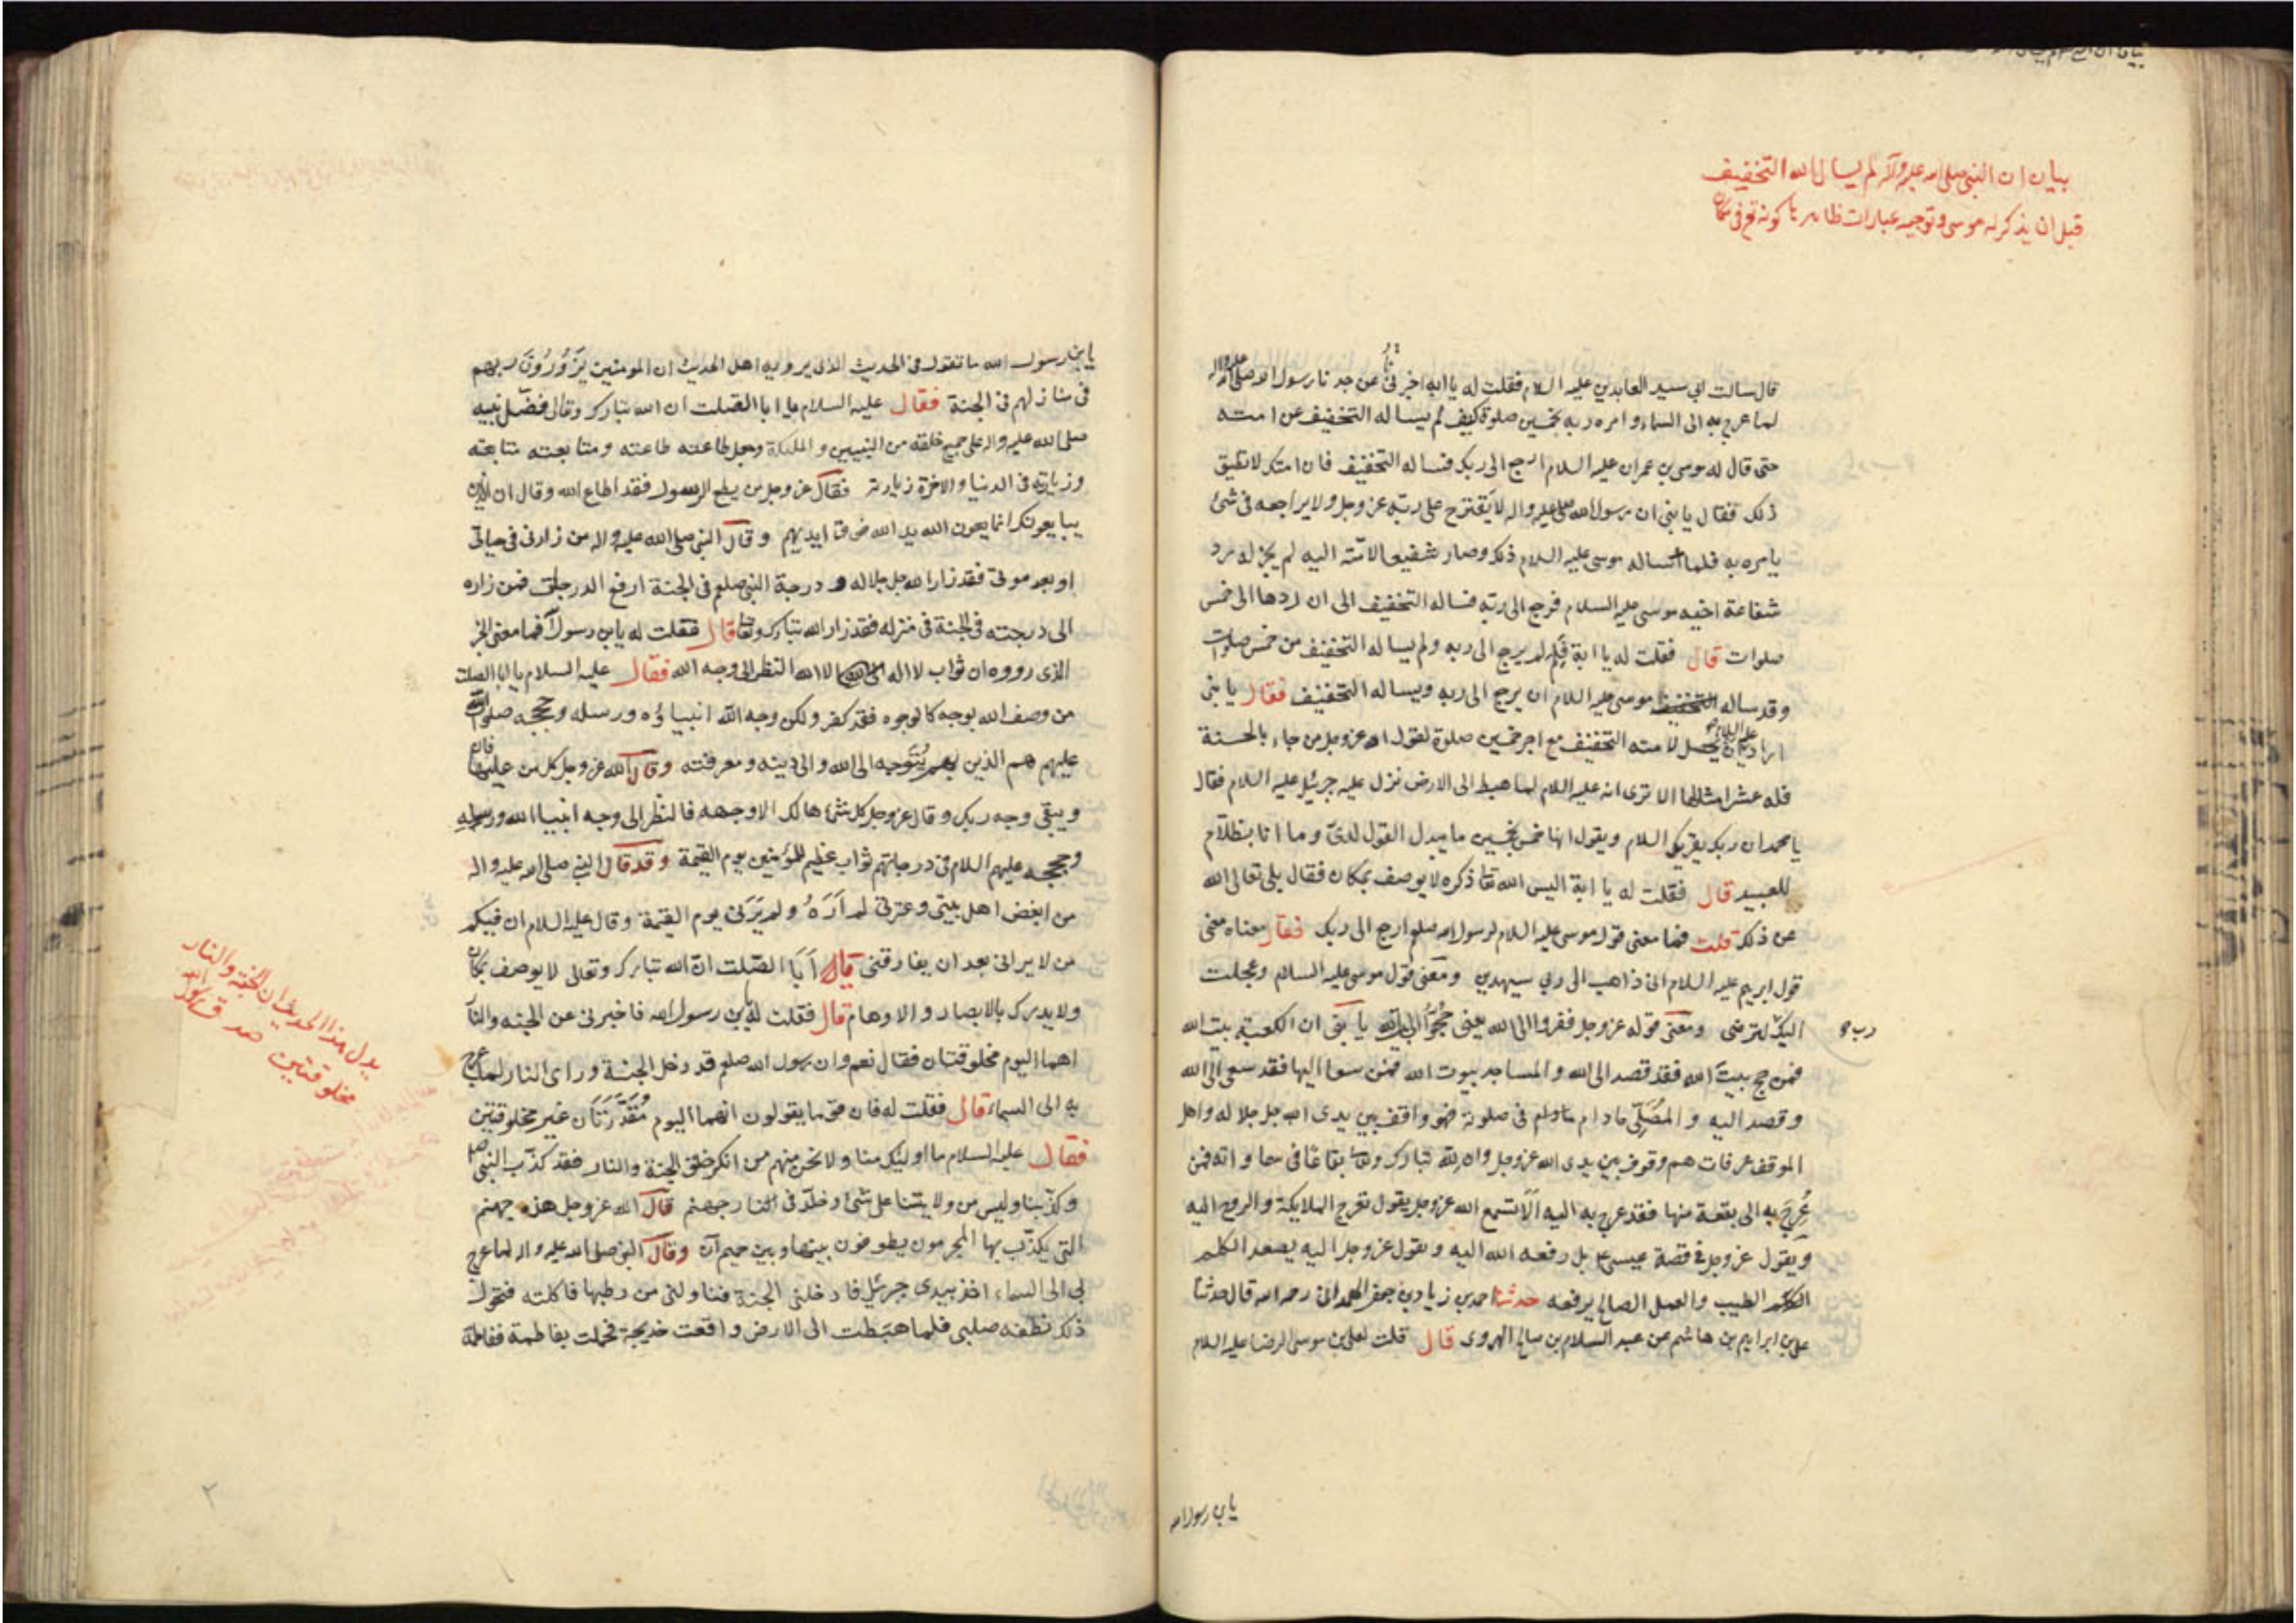 بيان ان النبي صلى الله عليه وآله لم يسال الله التخفيف
قبل ان يذكر له موسى وتوجيه عبارات ظاهرها كونه تع في مكان
قال سالت ابي سيد العابدين عليه السلام فقلت له يا ابه اخبرني عن جدنا رسول الله صلى الله عليه واله
لما عرج به الى السماء وامره ربه بخمسين صلوة كيف لم يساله التخفيف عن امته
حتى قال له موسى بن عمران عليه السلام ارجع الى ربك فساله التخفيف فان امتك لا تطيق
ذلك فقال يا بني ان رسول الله صلى الله عليه واله لا يقترح على ربه عز وجل ولا يراجعه في شئ
يامره به فلما ساله موسى عليه السلام ذلك وصار شفيعا لامته اليه لم يجز له رد
شفاعة اخيه موسى عليه السلام فرجع الى ربه فساله التخفيف الى ان ردها الى خمس
صلوات قال فقلت له يا ابة فلم لم يرجع الى ربه ولم يساله التخفيف من خمس صلوات
وقد ساله موسى عليه السلام ان يرجع الى ربه ويساله التخفيف فقال يا بني
اراد عليه السلام ان يحصل لامته التخفيف مع اجر خمسين صلوة لقول الله عز وجل من جاء بالحسنة
فله عشر امثالها الا ترى انه عليه السلام لما هبط الى الارض نزل عليه جبرئيل عليه السلام فقال
يا محمد ان ربك يقرئك السلام ويقول انها خمس بخمسين ما يبدل القول لدي وما انا بظلام
للعبيد قال فقلت له يا ابة اليس الله تعا ذكره لا يوصف بمكان فقال بلى تعالى الله
عن ذلك قلت فما معنى قول موسى عليه السلام لرسول الله صلعم ارجع الى ربك فقال معناه معنى
قول ابرهيم عليه السلام اني ذاهب الى ربي سيهدين ومعنى قول موسى عليه السلام وعجلت
اليك رب لترضى ومعنى قوله عز وجل ففروا الى الله يعني حجوا الى بيت الله يا بني ان الكعبة بيت الله
فمن حج بيت الله فقد قصد الى الله والمساجد بيوت الله فمن سعا اليها فقد سعى الى الله
وقصد اليه والمصلي ما دام في صلوته فهو واقف بين يدي الله جل جلاله واهل
الموقف عرفات هم وقوف بين يدي الله عز وجل وان لله تبارك وتعا بقاعا في سماواته فمن
عرج به الى بقعة منها فقد عرج به اليه الا تسمع الله عز وجل يقول تعرج الملايكة والروح اليه
ويقول عز وجل في قصة عيسى ع بل رفعه الله اليه ويقول عز وجل اليه يصعد الكلم
الطيب والعمل الصالح يرفعه حدثنا احمد بن زياد بن جعفر الهمداني رحمه الله قال حدثنا
علي بن ابراهيم بن هاشم عن عبد السلام بن صالح الهروي قال قلت لعلي بن موسى الرضا عليه السلام
يا بن رسول الله
يا بن رسول الله ما تقول في الحديث الذي يرويه اهل الحديث ان المومنين يَزُورُونَ ربهم
في منازلهم في الجنة فقال عليه السلام يا ابا الصلت ان الله تبارك وتعالى فضل نبيه
صلى الله عليه واله على جميع خلقه من النبيين والملئكة وجعل طاعته طاعته ومتابعته متابعته
وزيارته في الدنيا والاخرة زيارته فقال عز وجل من يطع الرسول فقد اطاع الله وقال ان الذين
يبايعونك انما يبايعون الله يد الله فوق ايديهم وقال النبي صلى الله عليه واله من زارني في حياتي
او بعد موتي فقد زار الله جل جلاله و درجة النبي صلعم في الجنة ارفع الدرجات فمن زاره
الى درجته في الجنة في منزله فقد زار الله تبارك وتعا قال فقلت له يا بن رسول الله فما معنى الخبر
الذي رووه ان ثواب لا اله الا الله النظر الى وجه الله فقال عليه السلام يا ابا الصلت
من وصف الله بوجه كالوجوه فقد كفر ولكن وجه الله انبياؤه ورسله وحججه صلوات الله
عليهم هم الذين بهم يتوجه الى الله والى دينه ومعرفته وقال الله عز وجل كل من عليها فان
ويبقى وجه ربك وقال عز وجل كل شئ هالك الا وجهه فالنظر الى وجه انبياء الله ورسله
وحججه عليهم السلام في درجاتهم ثواب عظيم للمؤمنين يوم القيمة وقد قال النبي صلى الله عليه واله
من ابغض اهل بيتي وعترتي لم اَرَهُ ولم يَرَني يوم القيمة وقال عليه السلام ان فيكم
من لا يراني بعد ان يفارقني يا اَبَا الصلت ان الله تبارك وتعالى لا يوصف بمكان
ولا يدرك بالابصار والاوهام قال فقلت له يا بن رسول الله فاخبرني عن الجنة والنار
اهما اليوم مخلوقتان فقال نعم وان رسول الله صلعم قد دخل الجنة وراى النار لما عرج
به الى السماء قال فقلت له فان قوما يقولون انهما اليوم مُقَدَّرَتَان غير مخلوقتين
فقال عليه السلام ما اوليك منا ولا نحن منهم من انكر خلق الجنة والنار فقد كذب النبي صلعم
وكذبنا وليس من ولايتنا على شئ وخلد في النار جهنم قال الله عز وجل هذه جهنم
التي يكذب بها المجرمون يطوفون بينها وبين حميم آن وقال النبي صلى الله عليه واله لما عرج
بي الى السماء اخذ بيدي جبرئيل فادخلني الجنة فناولني من رطبها فاكلته فتحول
ذلك نطفه في صلبي فلما هبطت الى الارض واقعت خديجة فحملت بفاطمة ففاطمة
يدل هذا الحديث على ان الجنة والنار
مخلوقتين